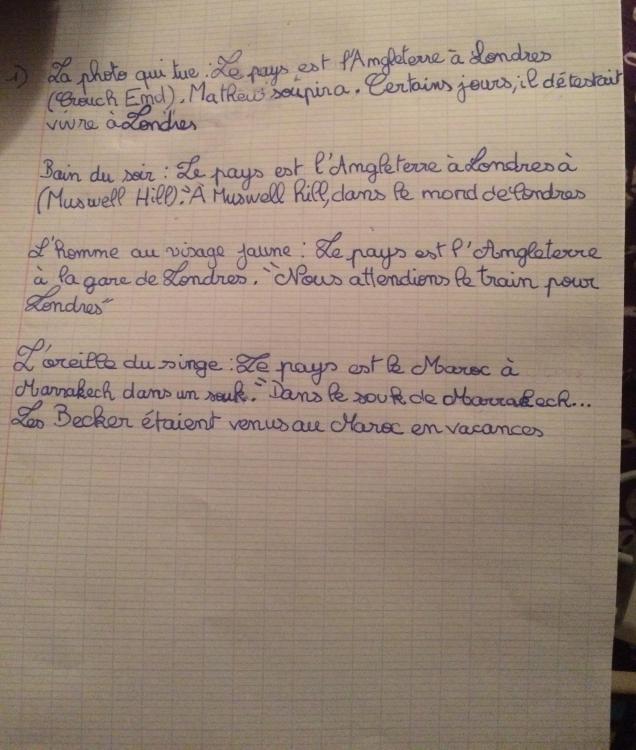 1) La photo qui tue : Le pays est l'Angleterre à Londres
(Crouch End). Mathew soupira. Certains jours, il détestait
vivre à Londres
Bain du soir : Le pays est l'Angleterre à Londres à
(Muswell Hill). "À Muswell hill, dans le mord de londres
L'homme au visage jaune : Le pays est l'Angleterre
à la gare de Londres. "Nous attendions le train pour
Londres"
L'oreille du singe : Le pays est le Maroc à
Marrakech dans un souk. "Dans le souk de Marrakech...
Les Becker étaient venus au Maroc en vacances